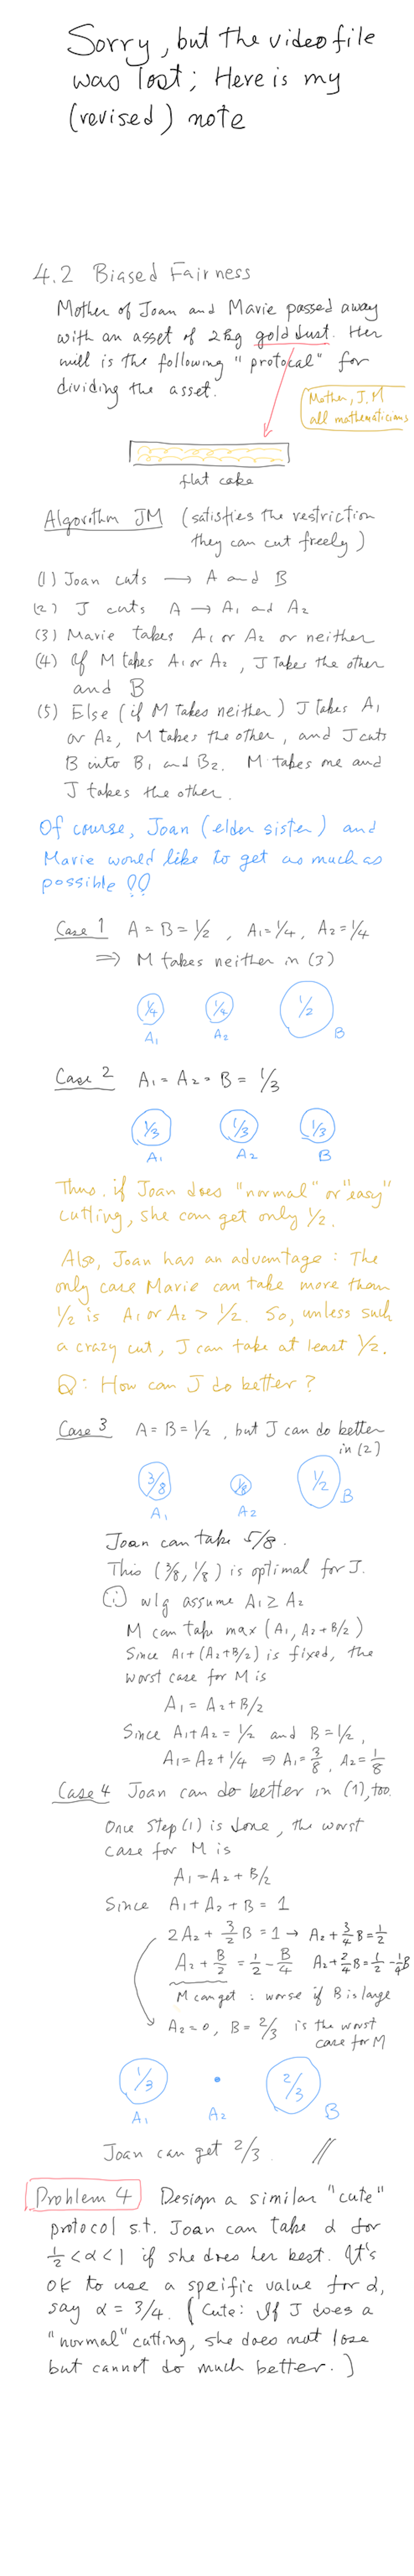 Sorry, but the video file
was lost; Here is my
(revised) note
4.2 Biased Fairness
Mother of Joan and Marie passed away
with an asset of 2kg gold dust. Her
will is the following "protocal" for
dividing the asset.
Mother, J, M
all mathematicians
flat cake
Algorithm JM (satisfies the restriction
they can cut freely)
(1) Joan cuts → A and B
(2) J cuts A → A1 and A2
(3) Marie takes A1 or A2 or neither
(4) If M takes A1 or A2, J takes the other
and B
(5) Else (if M takes neither) J takes A1
or A2, M takes the other, and J cuts
B into B1 and B2. M takes one and
J takes the other.
Of course, Joan (elder sister) and
Marie would like to get as much as
possible !!
Case 1 A = B = 1/2, A1 = 1/4, A2 = 1/4
⇒ M takes neither in (3)
1/4 1/4 1/2
A1 A2 B
Case 2 A1 = A2 = B = 1/3
1/3 1/3 1/3
A1 A2 B
Thus, if Joan does "normal" or "easy"
cutting, she can get only 1/2.
Also, Joan has an advantage: The
only case Marie can take more than
1/2 is A1 or A2 > 1/2. So, unless such
a crazy cut, J can take at least 1/2.
Q: How can J do better?
Case 3 A = B = 1/2, but J can do better
in (2)
3/8 1/8 1/2
A1 A2 B
Joan can take 5/8.
This (3/8, 1/8) is optimal for J.
∵ wlg assume A1 ≥ A2
M can take max (A1, A2 + B/2)
Since A1 + (A2 + B/2) is fixed, the
worst case for M is
A1 = A2 + B/2
Since A1 + A2 = 1/2 and B = 1/2,
A1 = A2 + 1/4 ⇒ A1 = 3/8, A2 = 1/8
Case 4 Joan can do better in (1), too.
Once Step (1) is done, the worst
case for M is
A1 = A2 + B/2
Since A1 + A2 + B = 1
2A2 + 3/2 B = 1 → A2 + 3/4 B = 1/2
A2 + B/2 = 1/2 - B/4 A2 + 2/4 B = 1/2 - 1/4 B
M can get : worse if B is large
A2 = 0, B = 2/3 is the worst
case for M
1/3 2/3
A1 A2 B
Joan can get 2/3. //
Problem 4 Design a similar "cute"
protocol s.t. Joan can take α for
1/2 < α < 1 if she does her best. It's
OK to use a specific value for α,
say α = 3/4. (Cute: If J does a
"normal" cutting, she does not lose
but cannot do much better.)